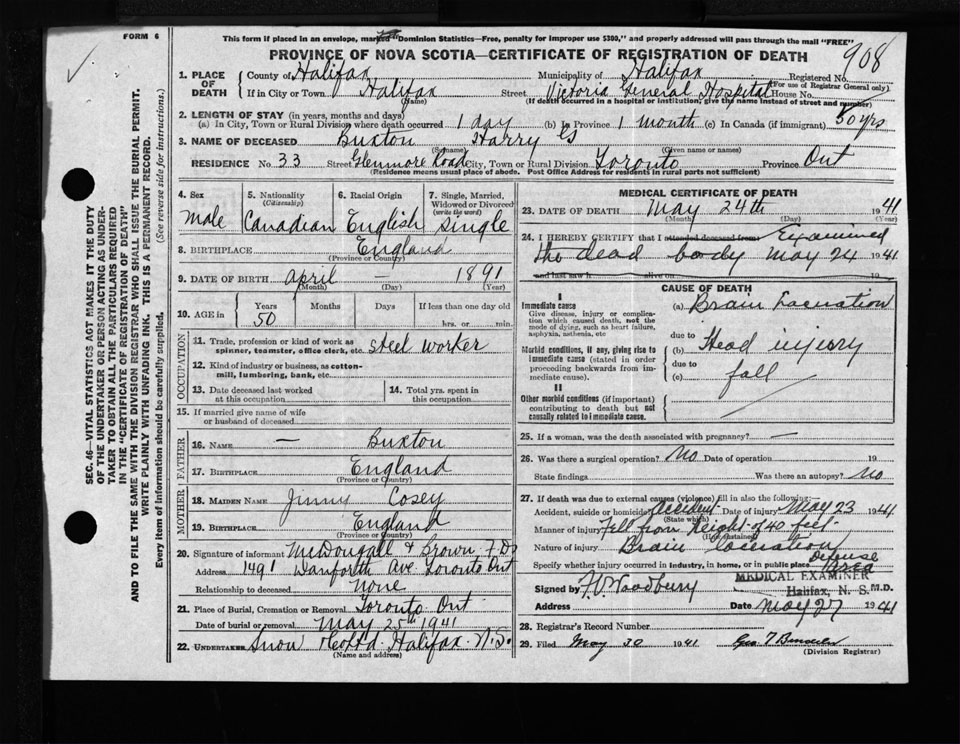 FORM 6
This form if placed in an envelope, marked "Dominion Statistics—Free, penalty for improper use $300," and properly addressed will pass through the mail "FREE"
PROVINCE OF NOVA SCOTIA—CERTIFICATE OF REGISTRATION OF DEATH
908
1. PLACE OF DEATH
County of Halifax Municipality of Halifax Registered No.
(For use of Registrar General only)
If in City or Town Halifax Street Victoria General Hospital House No.
(Name) (If death occurred in a hospital or institution, give the name instead of street and number)
2. LENGTH OF STAY (in years, months and days)
(a) In City, Town or Rural Division where death occurred 1 day (b) In Province 1 month (c) In Canada (if immigrant) 50 yrs
3. NAME OF DECEASED Buxton Harry G
(Surname) (Given name or names)
RESIDENCE No 33 Street Glenmore Road City, Town or Rural Division Toronto Province Ont
(Residence means usual place of abode. Post Office Address for residents in rural parts not sufficient)
4. Sex
male
5. Nationality (Citizenship)
Canadian
6. Racial Origin
English
7. Single, Married, Widowed or Divorced (write the word)
Single
8. BIRTHPLACE England
(Province or Country)
9. DATE OF BIRTH april 1891
(Month) (Day) (Year)
10. AGE in Years Months Days If less than one day old
50 hrs. or min.
OCCUPATION
11. Trade, profession or kind of work as spinner, teamster, office clerk, etc. Steel worker
12. Kind of industry or business, as cotton-mill, lumbering, bank, etc.
13. Date deceased last worked at this occupation
14. Total yrs. spent in this occupation
15. If married give name of wife or husband of deceased
FATHER
16. Name — Buxton
17. Birthplace England
(Province or Country)
MOTHER
18. Maiden Name Jinny Cosey
19. Birthplace England
(Province or Country)
20. Signature of informant McDougall & Brown F.D.
Address 1491 Danforth Ave Toronto Ont
Relationship to deceased None
21. Place of Burial, Cremation or Removal Toronto Ont
Date of burial or removal May 25th 1941
22. Undertaker Snow & Co Ltd Halifax N.S.
(Name and address)
MEDICAL CERTIFICATE OF DEATH
23. DATE OF DEATH May 24th 1941
(Month) (Day) (Year)
24. I HEREBY CERTIFY that I attended deceased from Examined
the dead body May 24 1941
and last saw h alive on 19
CAUSE OF DEATH
Immediate cause
Give disease, injury or complication which caused death, not the mode of dying, such as heart failure, asphyxia, asthenia, etc
(a) Brain Laceration
due to
Morbid conditions, if any, giving rise to immediate cause (stated in order proceeding backwards from immediate cause).
(b) Head injury
due to
(c) fall
Other morbid conditions (if important) contributing to death but not causally related to immediate cause.
25. If a woman, was the death associated with pregnancy? —
26. Was there a surgical operation? No Date of operation 19
State findings Was there an autopsy? No
27. If death was due to external causes (violence) fill in also the following:
Accident, suicide or homicide? Accident Date of injury May 23 1941
(State which)
Manner of injury Fell from height of 40 feet
(How sustained)
Nature of injury Brain laceration
Specify whether injury occurred in industry, in home, or in public place Defense Area
Signed by F.V. Woodbury M.D.
MEDICAL EXAMINER
Halifax, N. S.
Address Date May 27 1941
28. Registrar's Record Number
29. Filed May 30 1941 Geo T
(Division Registrar)
SEC. 46—VITAL STATISTICS ACT MAKES IT THE DUTY
OF THE UNDERTAKER OR PERSON ACTING AS UNDER-
TAKER TO OBTAIN ALL THE PARTICULARS REQUIRED
IN THE "CERTIFICATE OF REGISTRATION OF DEATH"
AND TO FILE THE SAME WITH THE DIVISION REGISTRAR WHO SHALL ISSUE THE BURIAL PERMIT.
WRITE PLAINLY WITH UNFADING INK. THIS IS A PERMANENT RECORD.
Every item of information should be carefully supplied. (See reverse side for instructions.)